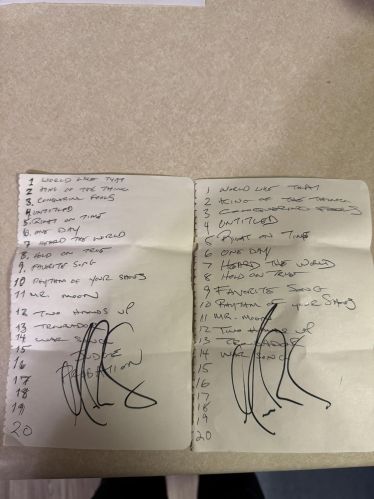 1 WORLD LIKE THAT
2 KING OF THE THING
3. CONQUERING FOOLS
4 UNTITLED
5. RIGHT ON TIME
6. ONE DAY
7 HEARD THE WORLD
8. HOLD ON TRUE
9. FAVORITE SONG
10 RHYTHM OF YOUR SHOES
11 MR. MOON
12 TWO HANDS UP
13 TROUBADOUR
14 WAR SONG
15 JUDGE
16 PROBATION
17
18
19
20
1 WORLD LIKE THAT
2 KING OF THE THING
3 CONQUERING FOOLS
4 UNTITLED
5 RIGHT ON TIME
6 ONE DAY
7 HEARD THE WORLD
8 HOLD ON TRUE
9 FAVORITE SONG
10 RHYTHM OF YOUR SHOES
11 MR. MOON
12 TWO HANDS UP
13 TROUBADOUR
14 WAR SONG
15
16
17
18
19
20